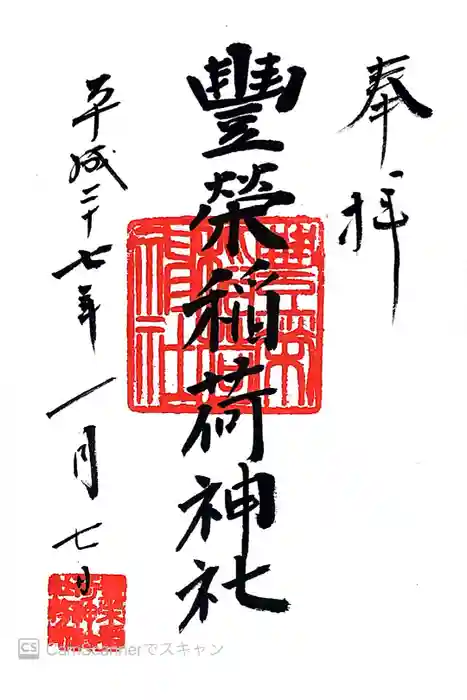 奉拝
豐榮稲荷神社
平成二十七年一月七日
豐榮稲荷神社
CS CamScannerでスキャン